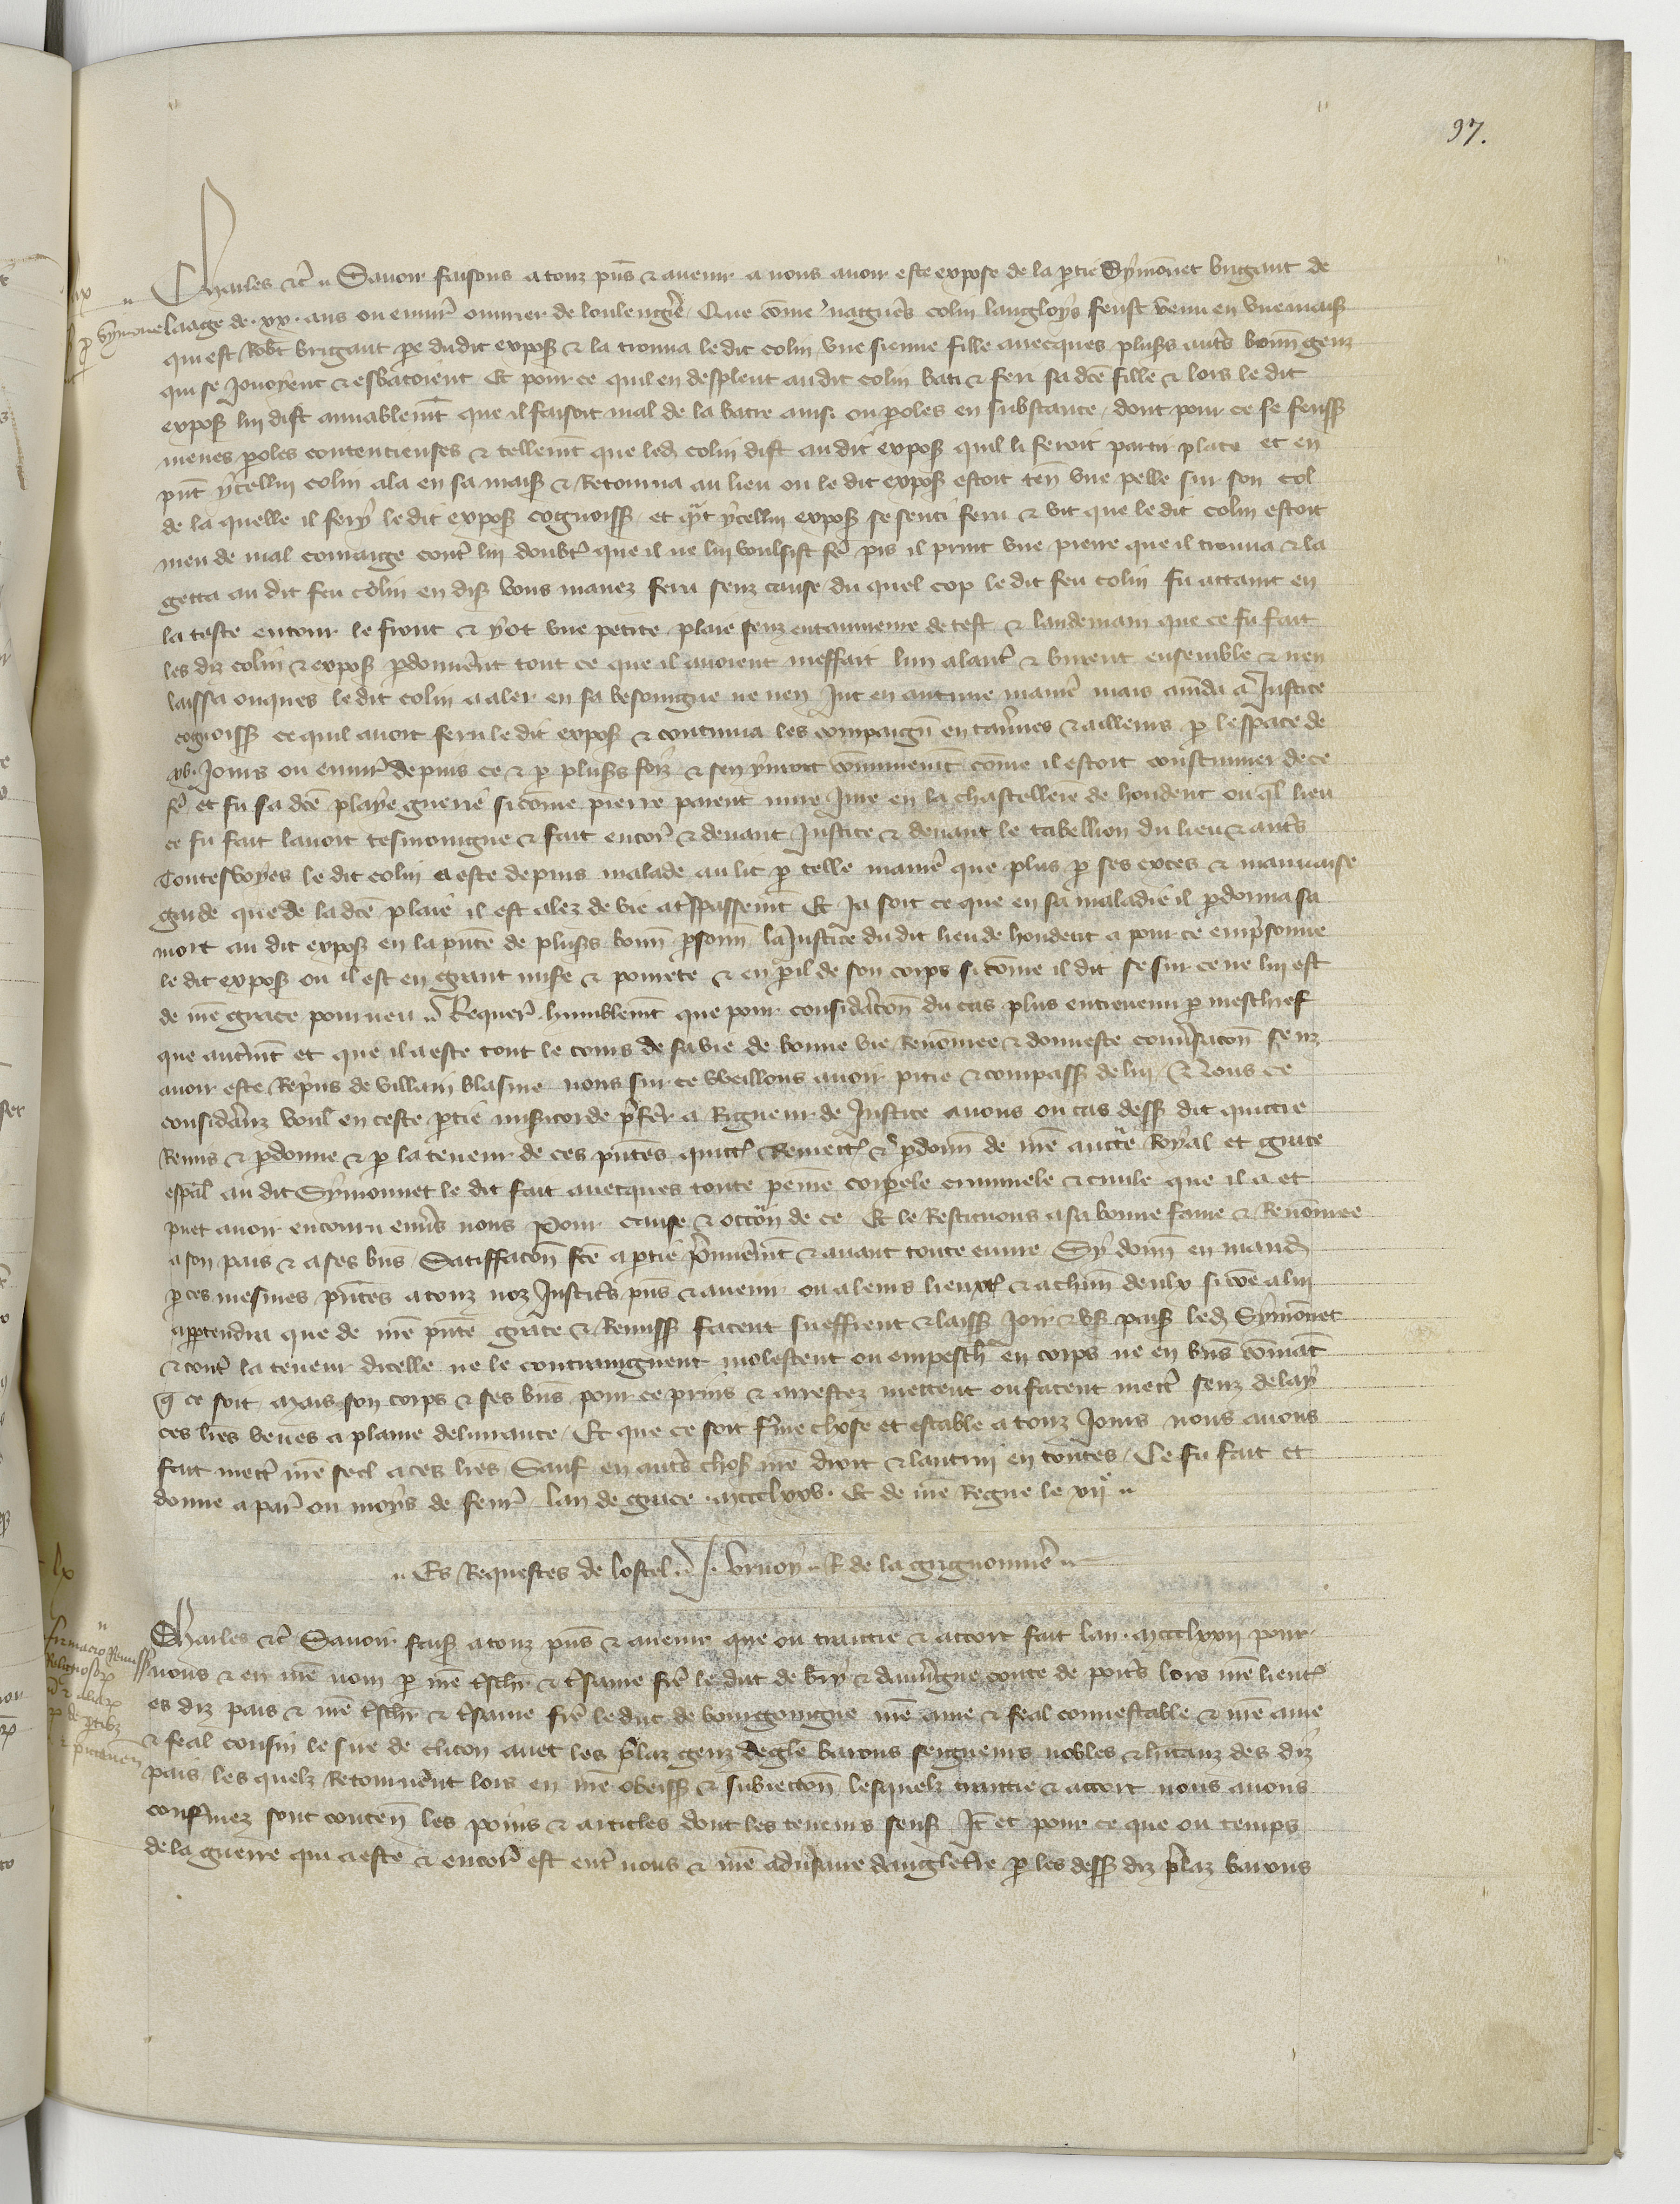 97.
Charles etc. Savoir faisons a touz pns & avenir a nous avoir este expose de la ptie Symonnet Brigaut de
laage de .xx. ans ou envir ouvrier de boulengie Que come nagues Colin Langloys feust venu en une mais
qui est Robt Brigaut pe dudit expos & la trouva ledit Colin une sienne fille avecques plus auts bonn genz
qui se jouoyent & esbatoient Et pour ce quil en desplut audit Colin bati & feri sa dce fille & lors le dit
expos lui dist amiablemt que il faisoit mal de la batre ainsi ou poles en substance dont pour ce se feuss
meues poles contencieuses & tellemt que led Colin dist audit expos quil li feroit partir place et en
pnt ycellui Colin ala en sa mais & retourna au lieu ou le dit expos estoit ten une pelle sur son col
de la quelle il fery le dit expos cognoiss et qnt ycellui expos se senti feru & vit que le dit Colin estoit
meu de mal couraige cont lui doubt que il ne lui voulsist fe pis il print une pierre que il trouva & la
getta au dit feu Colin en dis vous mavez feru senz cause du quel cop le dit feu Colin fu attaint en
la teste entour le front & y ot une petite plaie senz entammeure de test & landemain que ce fu fait
les diz Colin & expos pdonnerent tout ce que il avoient meffait lun a lautre & burent ensemble & nen
laissa onques le dit Colin a aler en sa besoingne ne nen jut en aucune manie mais amda a Justice
cognoiss ce quil avoit feru le dit expos & continua les compaign en tavnes & ailleurs p lespace de
xv. jours ou envir depuis ce & p pluss foiz & sen yvroit communemt come il estoit coustumier de ce
fe et fu sa dce playe guerie si come Pierre Parent mire jure en la chastellerie de Houdent ou ql lieu
ce fu fait lavoit tesmoingne & fait encor & devant Justice & devant le tabellion du lieu & auts
Toutesvoyes le dit Colin a este depuis malade au lit p telle manie que plus p ses exces & mauvaise
garde que de la dce plaie il est alez de vie a trspassemt Et ja soit ce que en sa maladie il pdonna sa
mort au dit expos en la pnce de pluss bonn psonn la Justice du dit lieu de Houdent a pour ce emprisonne
le dit expos ou il est en grant mise & povrete & en pil de son corps si come il dit se sur ce ne lui est
de nre grace pourveu Requer humblemt que pour consideracon du cas plus entrevenu p meschief
que autremt et que il a este tout le cours de sa vie de bonne vie renommee & donneste conversacon senz
avoir este repris de villain blasme nous sur ce vueillons avoir pitie & compass de lui Nous ce
considerans voul en ceste ptie misericorde prefer a rigueur de Justice avons ou cas dess dit quittie
remis & pdonne & p la teneur de ces pntes quitt remett & pdonn de nre auctte royal et grace
espal au dit Symonnet le dit fait avecques toute peine corpele criminele & civile que il a et
puet avoir encouru envs nous pour cause & occon de ce Et le restituons a sa bonne fame & renommee
a son pais & a ses bns Satisffacon fce a ptie premieremt & avant toute euvre Sy donn en mand
p ces mesmes pntes a touz noz Justicrs pns & avenir ou a leurs lieuxt & a chun deulx si come a lui
apptendra que de nre pnte grace & remiss facent sueffrent & laiss joir & us pais led Symonnet
& cont la teneur dicelle ne le contraingnent molestent ou empesch en corps ne en bns comant
q ce soit Mais son corps & ses bns pour ce prins & arrestez mettent ou facent mett senz delay
ces lres veues a plaine delivrance Et que ce soit ferme chose et estable a touz jours nous avons
fait mett nre seel a ces lres Sauf en auts chos nre droit & lautrui en toutes Ce fu fait et
donne a Par ou moys de fevr lan de grace mccclxxv. Et de nre regne le xije
Es requestes de lostel J. Bruoy R de la Grignonnie
lx
Charles etc Savoir fais a touz pns & avenir que ou traictie & accort fait lan mccclxxii pour
nous & en nre nom p nre treschr & tresame fre le duc de Berry & dauvergne conte de poits lors nre lient
es diz pais & nre treschr & tresame fre le duc de Bourgoingne nre ame & feal connestable & nre ame
& feal cousin le sire de Clicon avec les prelaz genz degle barons seigneurs nobles & hitanz des diz
pais les quelz retournerent lors en nre obeiss & subieccon lesquelz traictie & accort nous avons
confirmez sont conten les poins & articles dont les teneurs sens It et pour ce que ou temps
de la guerre qui a este & encor est ent nous & nre adversaire dangletre p les dess diz prelaz barons